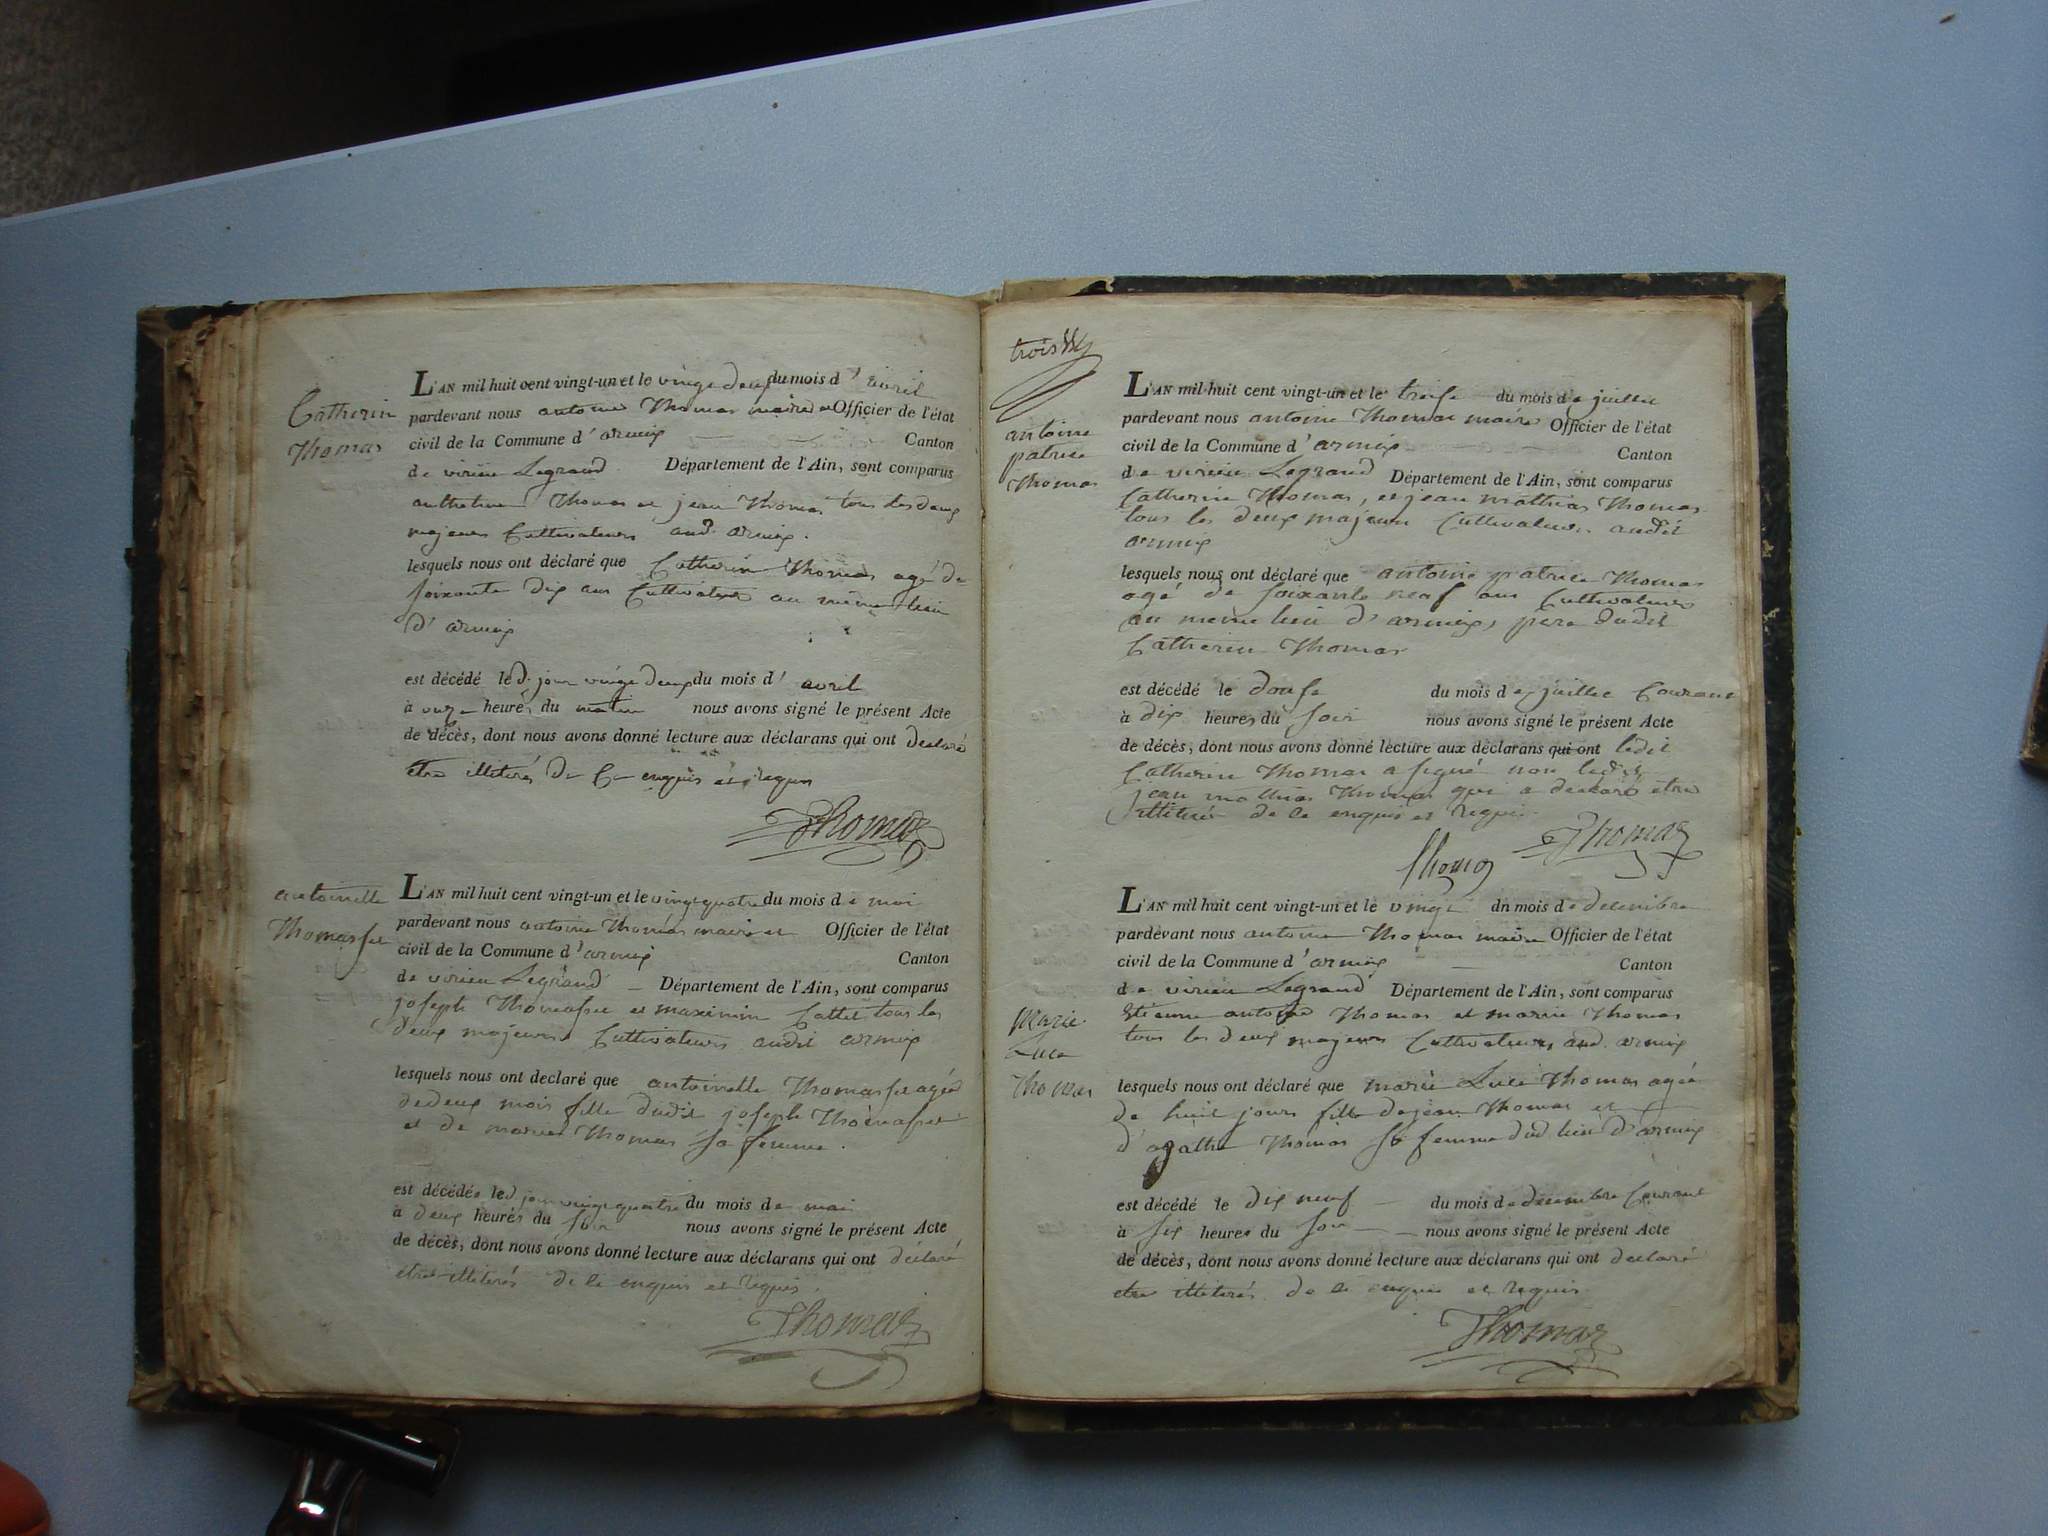 Catherin
Thomas
L'AN mil huit cent vingt-un et le vingt deux du mois d' avril
pardevant nous antoine Thomas maire et Officier de l'état
civil de la Commune d' armix Canton
de virieu Legrand Département de l'Ain, sont comparus
Thomas et jean Thomas tous les deux
majeurs Cultivateurs aud. armix.
lesquels nous ont déclaré que Catherin Thomas agé de
soixante dix ans Cultivateur au même lieu
d' armix
est décédé le d. jour vingt deux du mois d' avril
à onze heures du matin nous avons signé le présent Acte
de décès, dont nous avons donné lecture aux déclarans qui ont declaré
etre illiterés de Ce enquis et requis
Thomas
antoinette
Thomasset
L'AN mil huit cent vingt-un et le vingt quatre du mois de mai
pardevant nous antoine Thomas maire et Officier de l'état
civil de la Commune d' armix Canton
de virieu Legrand Département de l'Ain, sont comparus
joseph Thomasset et maximin Cattet tous les
deux majeurs Cultivateurs audit armix
lesquels nous ont declaré que antoinette Thomasset agée
de deux mois fille dudit joseph Thomasset
et de marie Thomas sa femme.
est décédée le d jour vingt quatre du mois de mai
à deux heures du soir nous avons signé le présent Acte
de décès, dont nous avons donné lecture aux déclarans qui ont déclaré
etre illiterés de ce enquis et requis.
Thomas
trois
antoine
patrice
Thomas
L'AN mil huit cent vingt-un et le treise du mois de juillet
pardevant nous antoine Thomas maire Officier de l'état
civil de la Commune d' armix Canton
de virieu Legrand Département de l'Ain, sont comparus
Catherin Thomas, et jean matthias Thomas
tous les deux majeurs Cultivateurs audit
armix
lesquels nous ont déclaré que antoine patrice Thomas
agé de soixante neuf ans Cultivateur
au meme lieu d' armix, pere dudit
Catherin Thomas
est décédé le douse du mois de juillet Courant
à dix heures du soir nous avons signé le présent Acte
de décès, dont nous avons donné lecture aux déclarans qui ont ledit
Catherin Thomas a signé non ledit
jean mathias Thomas qui a declaré etre
illiteré de ce enquis et requis.
Thomas
Thomas
Marie
Luce
Thomas
L'AN mil huit cent vingt-un et le vingt du mois de decembre
pardevant nous antoine Thomas maire Officier de l'état
civil de la Commune d' armix Canton
de virieu Legrand Département de l'Ain, sont comparus
Etienne antoine Thomas et marin Thomas
tous les deux majeurs Cultivateurs aud. armix
lesquels nous ont déclaré que marie Luce Thomas agée
de huit jours fille de jean Thomas et
d' agathe Thomas sa femme dud lieu d' armix
est décédé le dix neuf du mois de decembre Courant
à six heures du soir nous avons signé le présent Acte
de décès, dont nous avons donné lecture aux déclarans qui ont declaré
etre illiterés de ce enquis et requis
Thomas